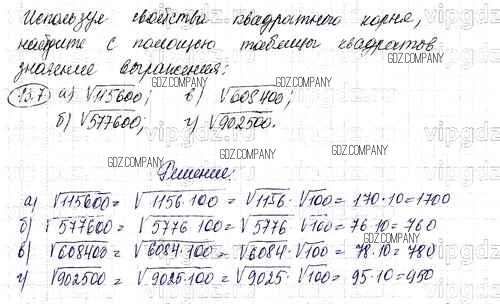 Используя свойства квадратного корня,
найдите с помощью таблицы квадратов
значение выражения:
15.7 а) √115600; в) √608400;
б) √577600; г) √902500.
Решение:
а) √115600 = √1156·100 = √1156·√100 = 170·10 = 1700
б) √577600 = √5776·100 = √5776·√100 = 76·10 = 760
в) √608400 = √6084·100 = √6084·√100 = 78·10 = 780
г) √902500 = √9025·100 = √9025·√100 = 95·10 = 950
GDZ.COMPANY
vipgdz